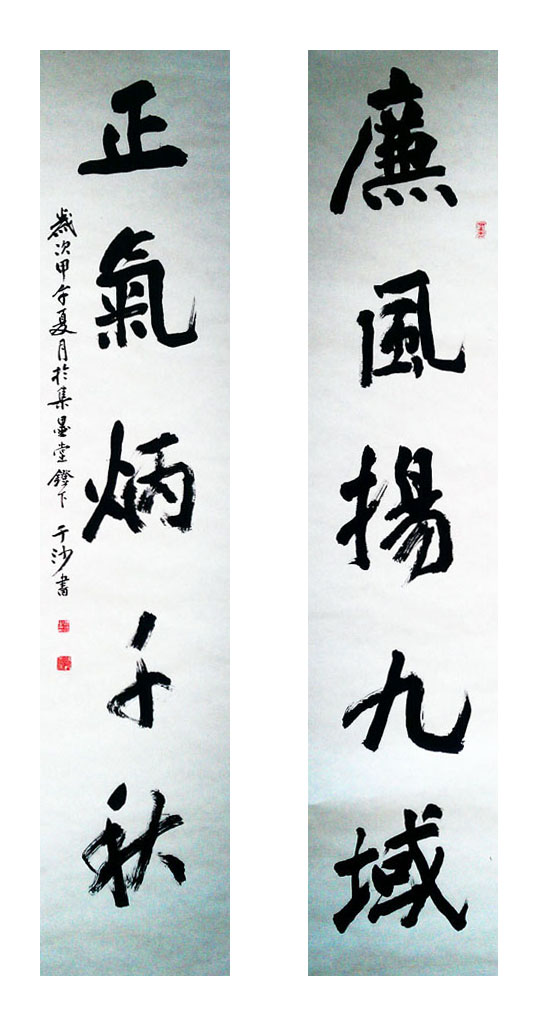 廉風揚九域
正氣炳千秋
歲次甲午夏月於集墨堂鐙下 于沙書